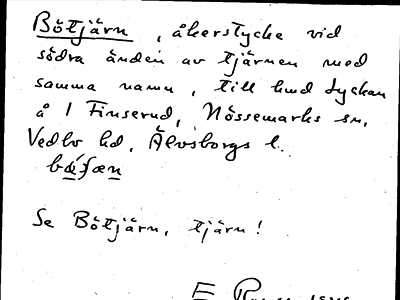 Bötjärn, åkerstycke vid
södra änden av tjärnen med
samma namn, till hmd Lyckan
å 1 Finserud, Nössemarks sn,
Vedbo hd, Älvsborgs l.
Se Bötjärn, tjärn!
E